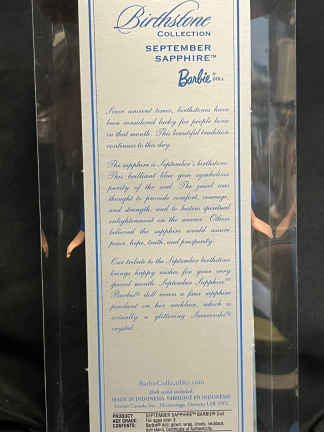 Birthstone
COLLECTION
SEPTEMBER
SAPPHIRE™
Barbie® DOLL
Since ancient times, birthstones have
been considered lucky for people born
in that month. This beautiful tradition
continues to this day.
The sapphire is September's birthstone.
This brilliant blue gem symbolizes
purity of the soul. The jewel was
thought to provide comfort, courage
and strength, and to hasten spiritual
enlightenment on the wearer. Others
believed the sapphire would assure
peace, hope, truth, and prosperity.
Our tribute to the September birthstone
brings happy wishes for your very
special month. September Sapphire™
Barbie® doll wears a faux sapphire
pendant on her necklace, which is
actually a glittering Swarovski®
crystal.
BarbieCollectibles.com
Doll stand included.
MADE IN INDONESIA. FABRIQUÉ EN INDONÉSIE.
Mattel Canada Inc., Mississauga, Ontario L5R 3W2.
PRODUCT SEPTEMBER SAPPHIRE™ BARBIE® Doll
AGE GRADE: For ages over 6
CONTENTS: Barbie® doll, gown,
doll stand, Certificate of Authenticity